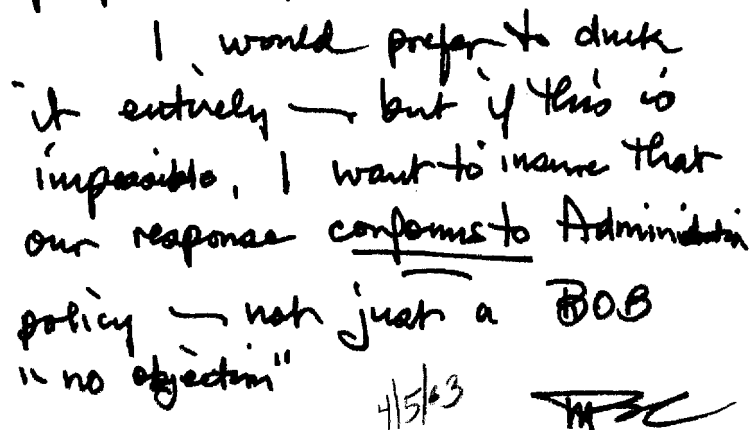 I would prefer to duck
it entirely — but if this is
impossible, I want to insure that
our response conforms to Administration
policy — not just a BOB
"no objection"
4/5/63